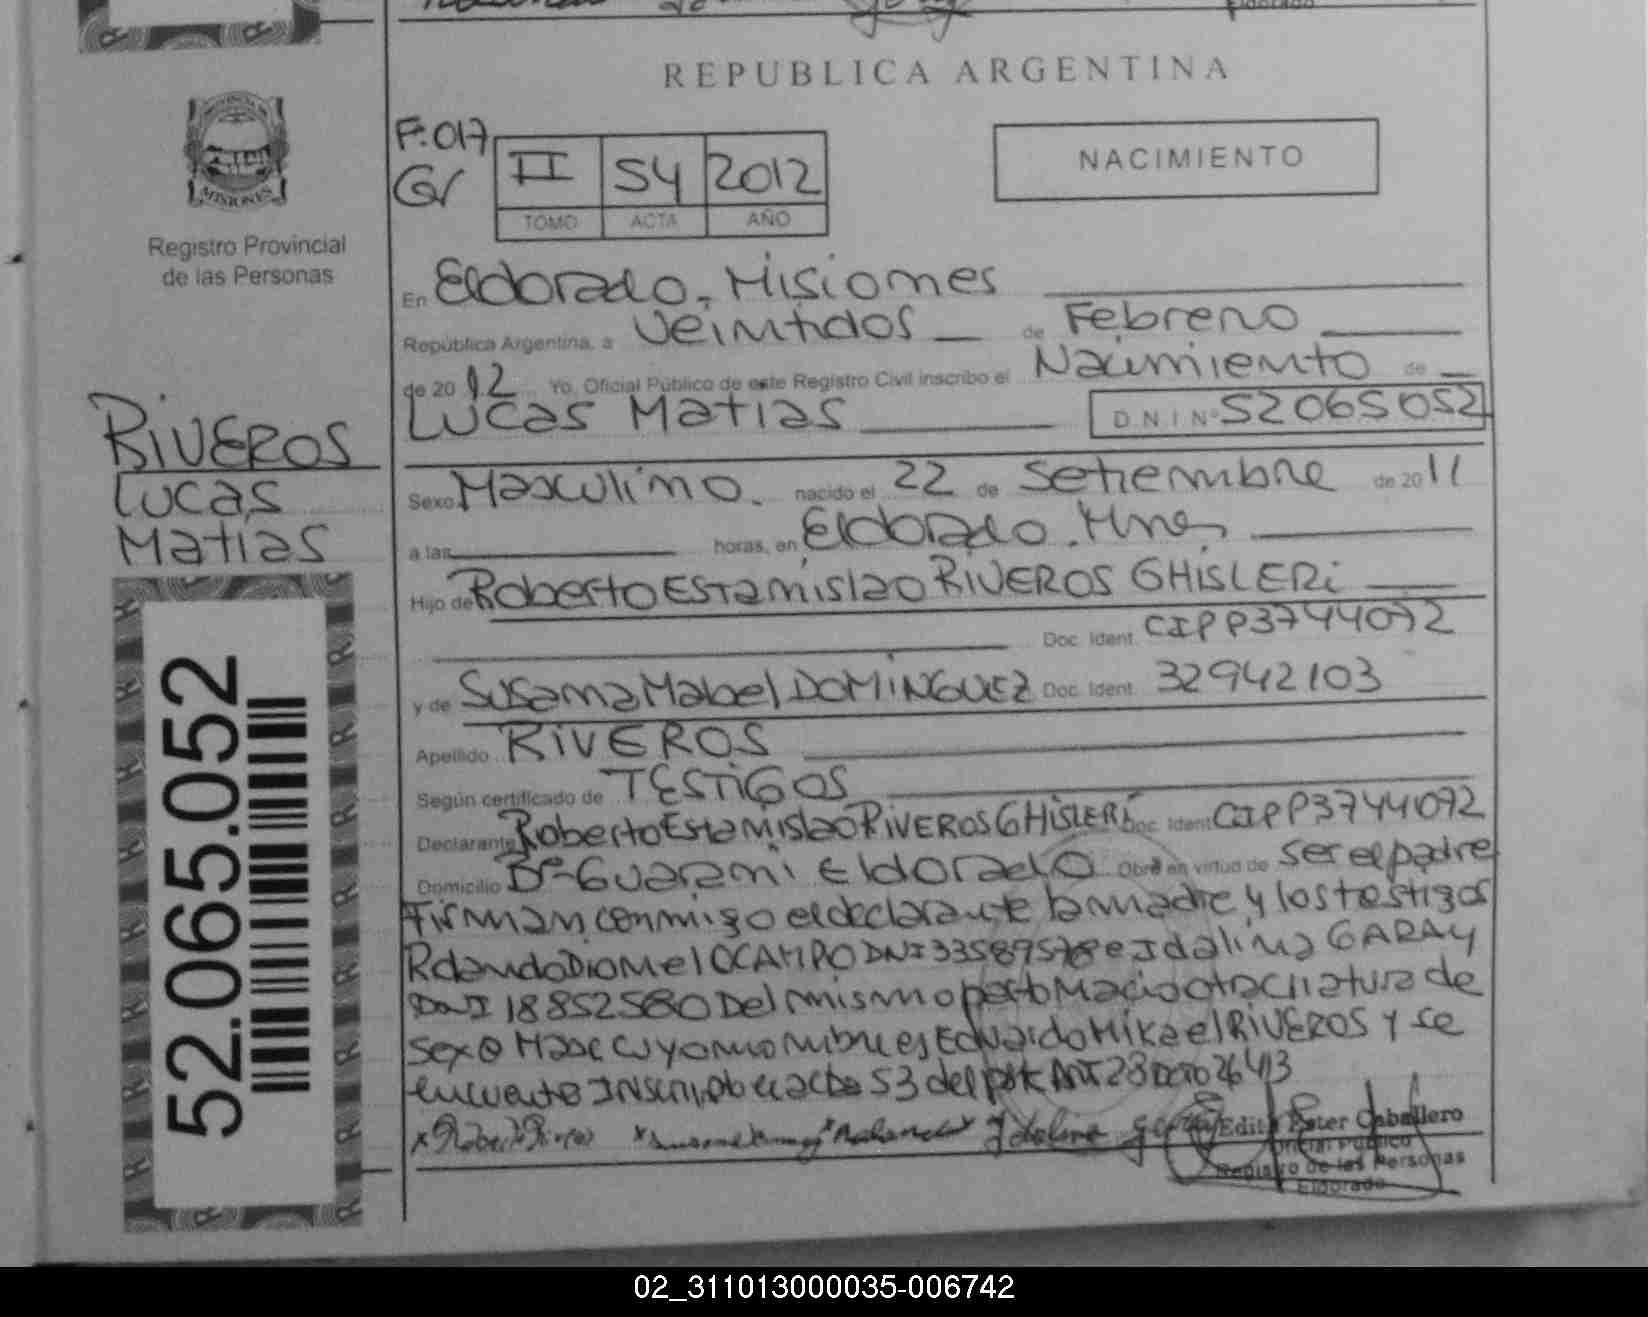 REPUBLICA ARGENTINA
PROVINCIA DE
MISIONES
Registro Provincial
de las Personas
F. 017
II 54 2012
TOMO ACTA AÑO
NACIMIENTO
En Eldorado, Misiones
República Argentina, a Veintidos de Febrero
de 2012 Yo, Oficial Público de este Registro Civil inscribo el Nacimiento de
Lucas Matias D.N.I Nº 52065052
Sexo Masculino. nacido el 22 de Setiembre de 2011
a las horas, en Eldorado. Mnes
Hijo de Roberto Estanislao RIVEROS GHISLERI
Doc. Ident. CIPP3744072
y de Susana Mabel DOMINGUEZ Doc. Ident. 32942103
Apellido RIVEROS
Según certificado de TESTIGOS
Declarante Roberto Estanislao RIVEROS GHISLERI Doc. Ident CIPP3744072
Domicilio Bº Guarani Eldorado Obra en virtud de ser el padre
Firman conmigo el declarante la madre y los testigos
Rolando Diomel OCAMPO DNI 33589578 e Idalina GARAY
DNI 18852580 Del mismo parto Nacio otra criatura de
sexo Masc cuyo nombre es Eduardo Mikael RIVEROS y se
encuentra Inscripto en acta 53 del
Edith Ester Caballero
Oficial Público
Registro de las Personas
Eldorado
RIVEROS
Lucas
Matias
52.065.052
02_311013000035-006742